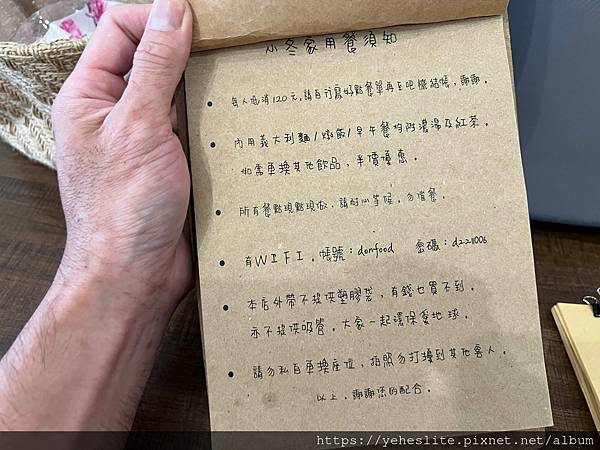 小冬家用餐須知
每人低消120元,請自行寫好點餐單再至吧檯結帳,謝謝。
內用義大利麵/燉飯/早午餐均附濃湯及紅茶。
如需更換其他飲品,半價優惠。
所有餐點現點現做,請耐心等候,勿催餐。
有WIFI。帳號:donfood 密碼:d221006
本店外帶不提供塑膠袋,有錢也買不到。
亦不提供吸管。大家一起環保愛地球。
請勿私自更換座位,拍照勿打擾到其他客人。
以上,謝謝您的配合。
https://yeheslite.pixnet.net/album